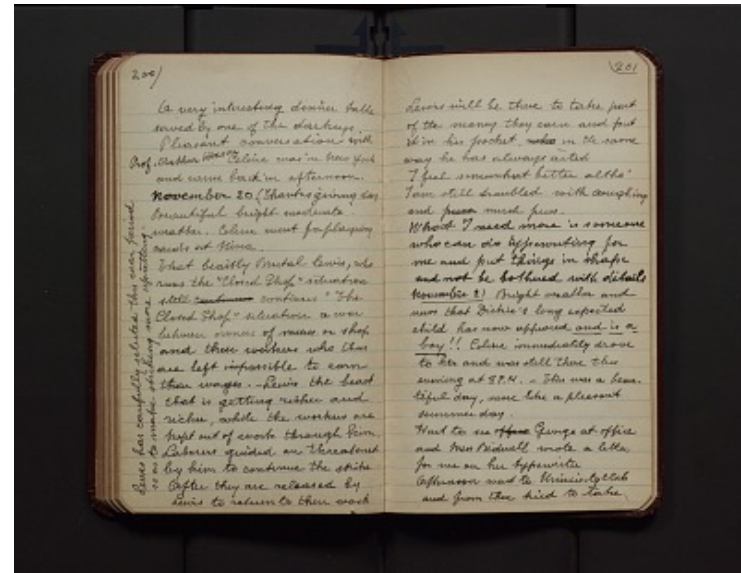 200/
A very interesting dinner talk
served by one of the darkeys.
Pleasant conversation with
Prof. Arthur Celine was in New York
and came back in afternoon.
November 20 (Thanksgiving day
Beautiful bright moderate
weather. Celine went for playing
cards at Nina.
That beastly Brutal Lewis, who
runs the "Closed Shop" situation
still continues "The
Closed Shop" situation a war
between owners of mines or shop
and these workers who thus
are left impossible to earn
their wages. - Lewis the beast
that is getting richer and
richer, while the workers are
kept out of work through him.
Laborers guided or threatened
by him to continue the strike
After they are released by
Lewis to return to their work
Lewis has carefully selected this war period
so as to make striking more upsetting.
201
Lewis will be there to take part
of the money they earn and put
it in his pocket, in the same
way he has always acted
I feel somewhat better altho'
I am still troubled with coughing
and much pus.
What I need more is someone
who can do typewriting for
me and put things in shape
and not be bothered with details
November 21 Bright weather and
news that Dickie's long expected
child has now appeared and is a
boy!! Celine immediately drove
to her and was still there this
evening at 8 P.M. - This was a beau-
tiful day, more like a pleasant
summer day.
Went to see George at office
and Miss Bidwell wrote a letter
for me on her typewriter
Afternoon went to University Club
and from there tried to take